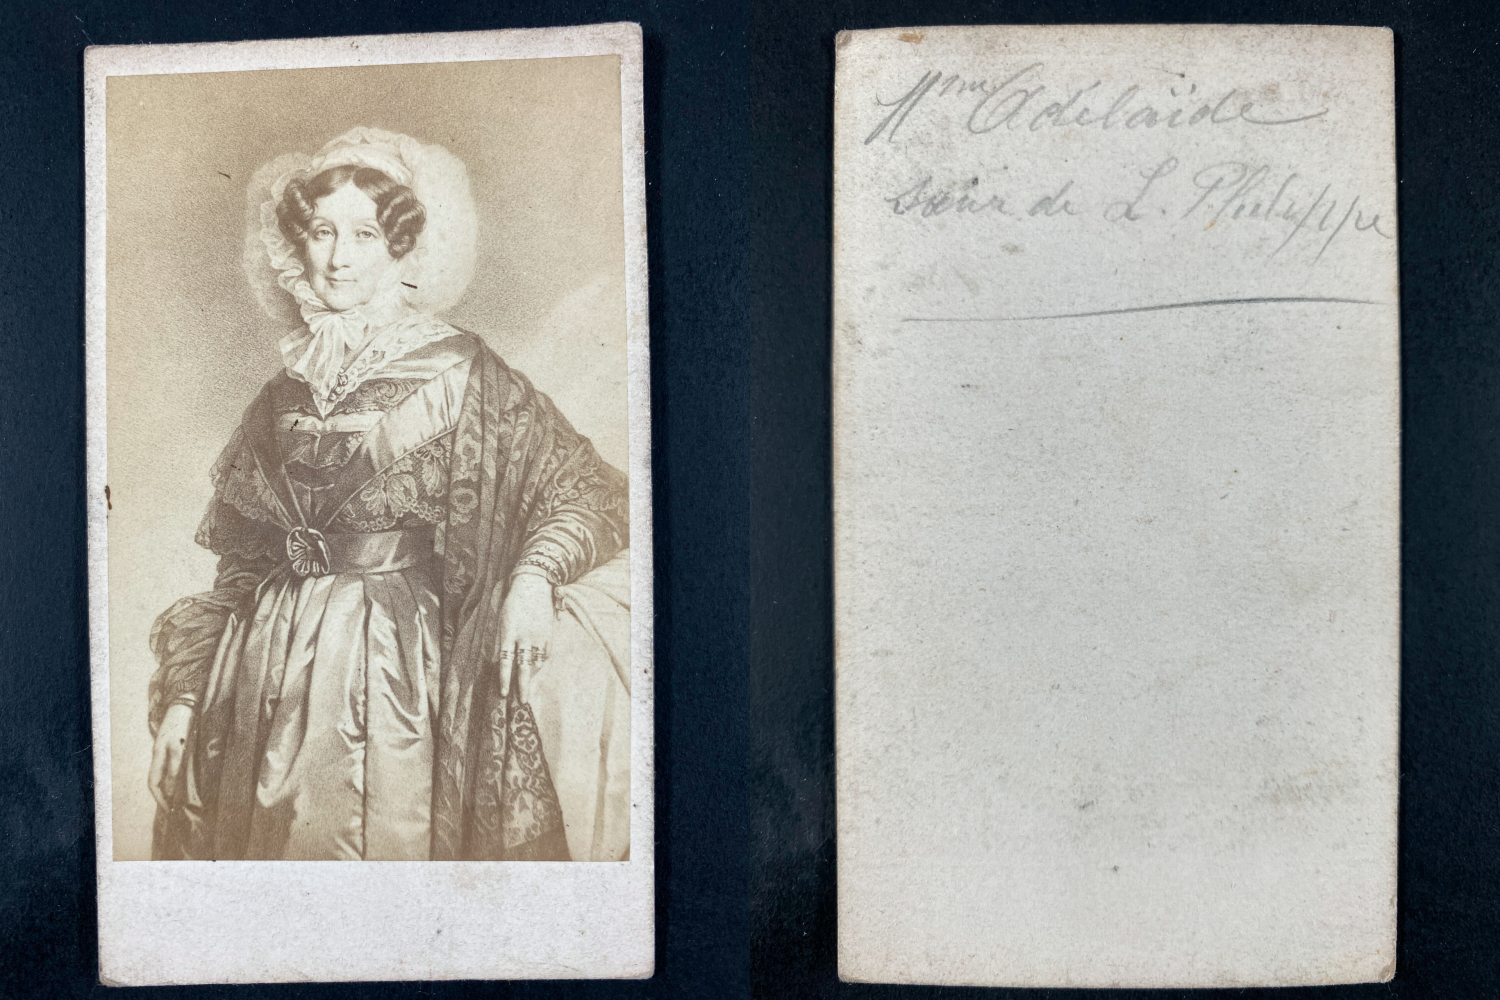 Mme Adélaïde
sœur de L. Philippe